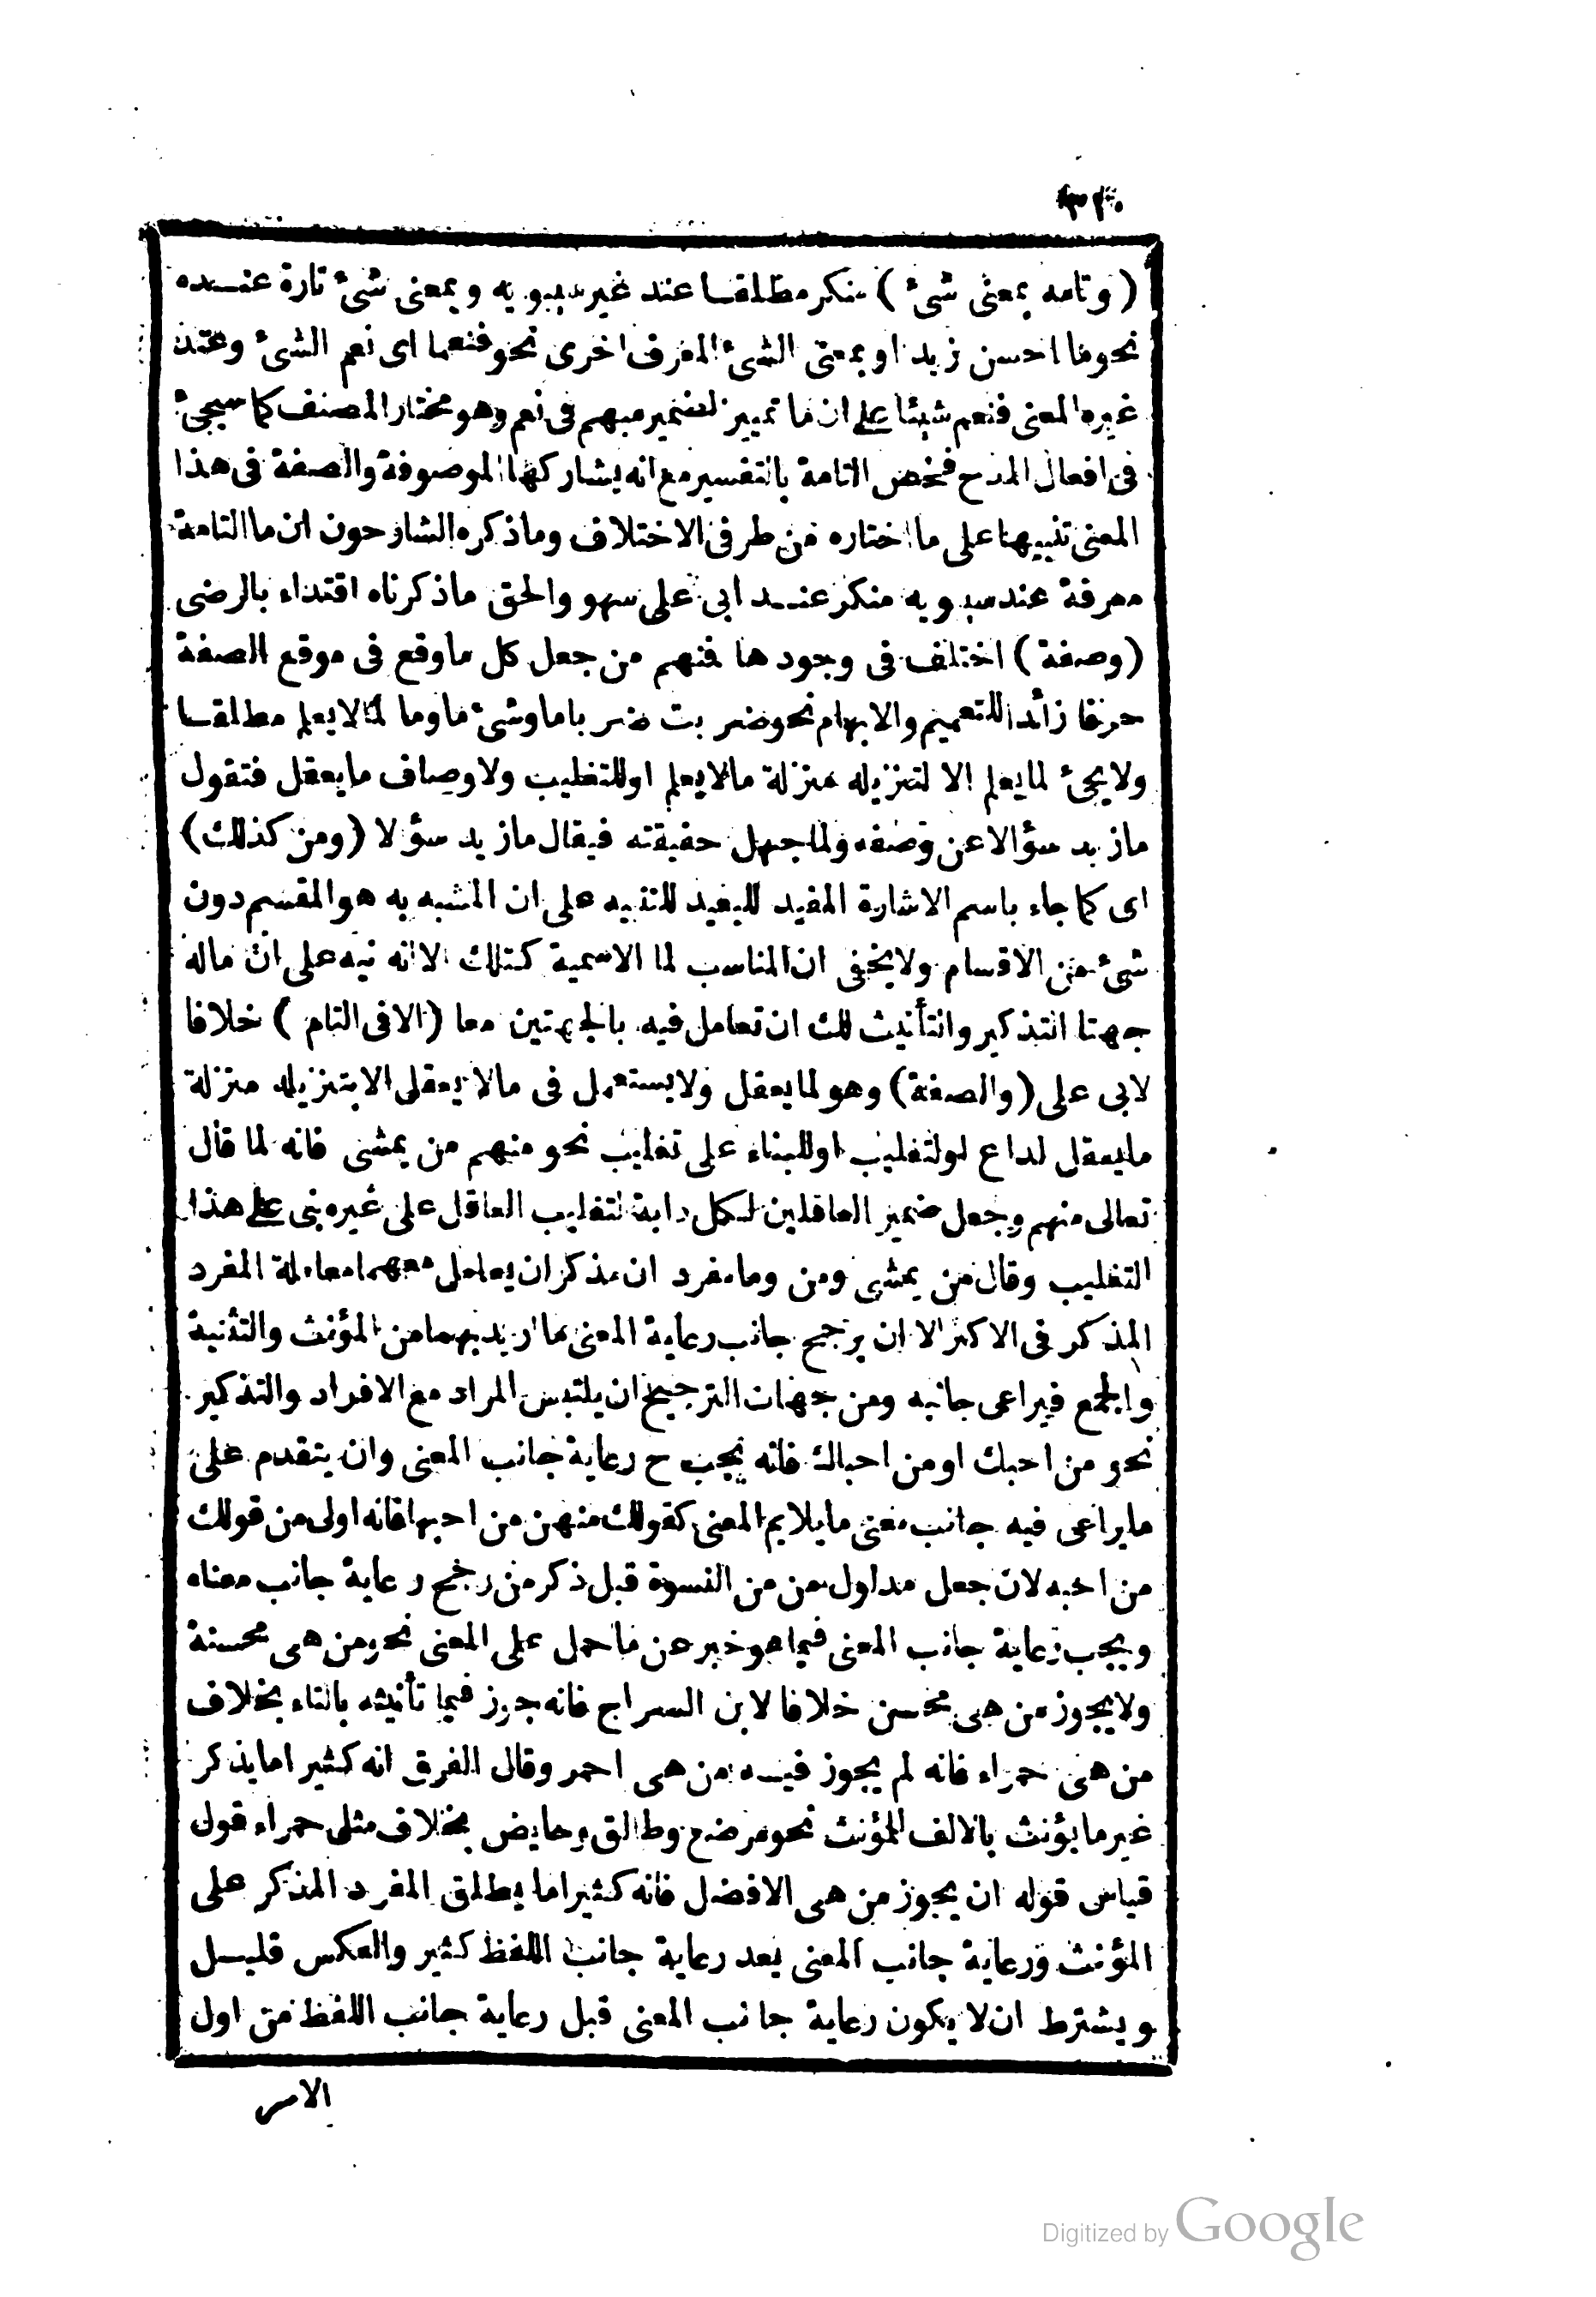 (وتامه بمعنى شئ) منكر مطلقا عند غير سيبويه وبمعنى شئ تارة عنده
نحو ما احسن زيدا او بمعنى الشئ المعرف اخرى نحو فنعما اى نعم الشئ وعند
غيره المعنى فنعم شيئا على ان ما تمييز لضمير مبهم فى نعم وهو مختار المصنف كما سيجئ
فى افعال المدح فخص التامة بالتفسير مع انه يشاركها الموصوفة والصفة فى هذا
المعنى تنبيها على ما اختاره من طرفى الاختلاف وما ذكره الشارحون ان ما التامة
معرفة عند سيبويه منكر عند ابى على سهو والحق ما ذكرناه اقتداء بالرضى
(وصفة) اختلف فى وجودها فمنهم من جعل كل ما وقع فى موقع الصفة
حرفا زائدا للتعميم والابهام نحو ضربت ضربا ما وشئ ما وما لما لا يعلم مطلقا
ولا يجئ لما يعلم الا لتنزيله منزلة ما لا يعلم او للتغليب ولاوصاف ما يعقل فتقول
ما زيد سؤالا عن وصفه ولما جهل حقيقته فيقال ما زيد سؤلا (ومن كذلك)
اى كما جاء باسم الاشارة المفيد للبعيد للتنبيه على ان المشبه به هو المقسم دون
شئ من الاقسام ولا يخفى ان المناسب لما الاسمية كتلك الا انه نبه على ان ماله
جهتا التذكير والتأنيث لك ان تعامل فيه بالجهتين معا (الا فى التام) خلافا
لابى على (والصفة) وهو لما يعقل ولا يستعمل فى ما لا يعقل الا بتنزيله منزلة
ما يعقل لداع او لتغليب او للبناء على تغليب نحو منهم من يمشى فانه لما قال
تعالى منهم وجعل ضمير العاقلين لكل دابة لتغليب العاقل على غيره بنى على هذا
التغليب وقال من يمشى ومن وما مفرد ان مذكر ان يعامل معهما معاملة المفرد
المذكر فى الاكثر الا ان يرجح جانب رعاية المعنى مما اريد بهما من المؤنث والتثنية
والجمع فيراعى جانبه ومن جهات الترجيح ان يلتبس المراد مع الافراد والتذكير
نحو من احبك او من احباك فانه يجب ح رعاية جانب المعنى وان يتقدم على
ما يراعى فيه جانب معنى ما يلايم المعنى كقولك منهن من احبها فانه اولى من قولك
من احبه لان جعل مدلول من من النسوة قبل ذكر من رجح رعاية جانب معناه
ويجب رعاية جانب المعنى فيما هو خبر عن ما حمل على المعنى نحو من هى محسنة
ولا يجوز من هى محسن خلافا لابن السراج فانه جوز فيما تأنيثه بالتاء بخلاف
من هى حمراء فانه لم يجوز فيه من هى احمر وقال الفرق انه كثير اما يذكر
غير ما يؤنث بالالف للمؤنث نحو مرضع وطالق وحايض بخلاف مثل حمراء قول
قياس قوله ان يجوز من هى الافضل فانه كثير اما يطلق المفرد المذكر على
المؤنث ورعاية جانب المعنى بعد رعاية جانب اللفظ كثير والعكس قليل
ويشترط ان لا يكون رعاية جانب المعنى قبل رعاية جانب اللفظ من اول
الامر
Digitized by Google